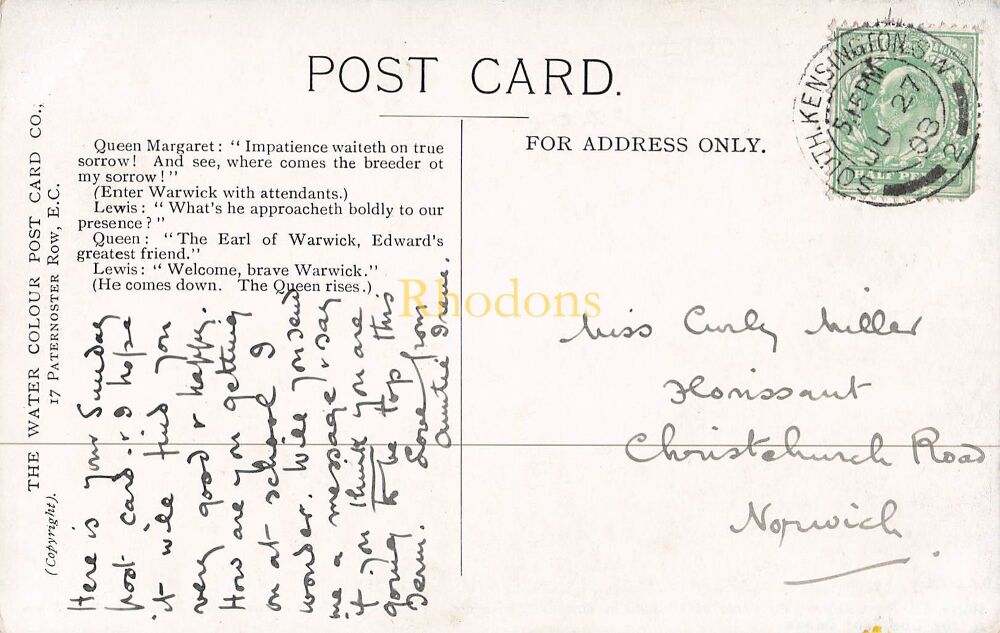 POST CARD.
THE WATER COLOUR POST CARD CO.,
17 PATERNOSTER ROW, E.C.
(Copyright).
Queen Margaret: "Impatience waiteth on true
sorrow! And see, where comes the breeder ot
my sorrow!"
(Enter Warwick with attendants.)
Lewis: "What's he approacheth boldly to our
presence?"
Queen: "The Earl of Warwick, Edward's
greatest friend."
Lewis: "Welcome, brave Warwick."
(He comes down. The Queen rises.)
Here is your Sunday
post card & I hope
it will find you
very good & happy.
How are you getting
on at school I
wonder. Will you send
me a message & say
if you think you are
going to be top this
Term. Love from
Auntie Irene.
FOR ADDRESS ONLY.
SOUTH.KENSINGTON.S.W
5.15PM
JU 27
08
2
HALF PENNY
Miss Curly Miller
Florissant
Christchurch Road
Norwich
Rhodons